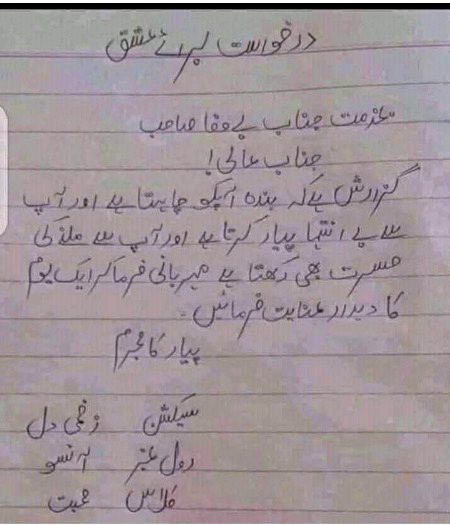 درخواست برائے عشق
بخدمت جناب بے وفا صاحب
جناب عالی!
گزارش ہے کہ بندہ آپکو چاہتا ہے اور آپ
سے بے انتہا پیار کرتا ہے اور آپ سے ملنے کی
حسرت بھی رکھتا ہے مہربانی فرما کر ایک یوم
کا دیدار عنایت فرمائیں۔
پیار کا مجرم
سیکشن زخمی دل
رول نمبر آنسو
کلاس محبت